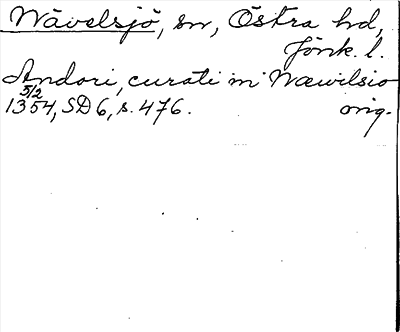 Nävelsjö, sn, Östra hd,
Jönk. l.
Andori, curati in Nævilsio
5/2
1354, SD 6, s. 476. orig.